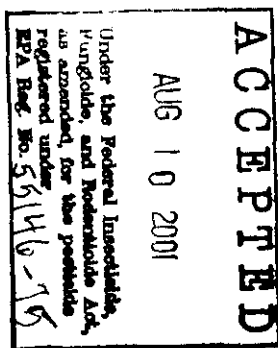 ACCEPTED
AUG 10 2001
Under the Federal Insecticide,
Fungicide, and Rodenticide Act,
as amended, for the pesticide
registered under
EPA Reg. No. 55146-75